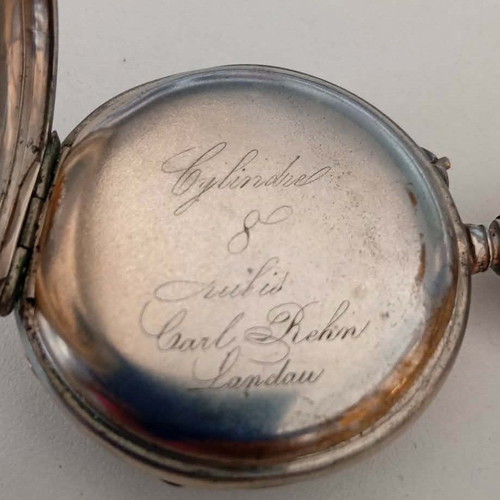 Cylindre
8
rubis
Carl Rehn
Landau